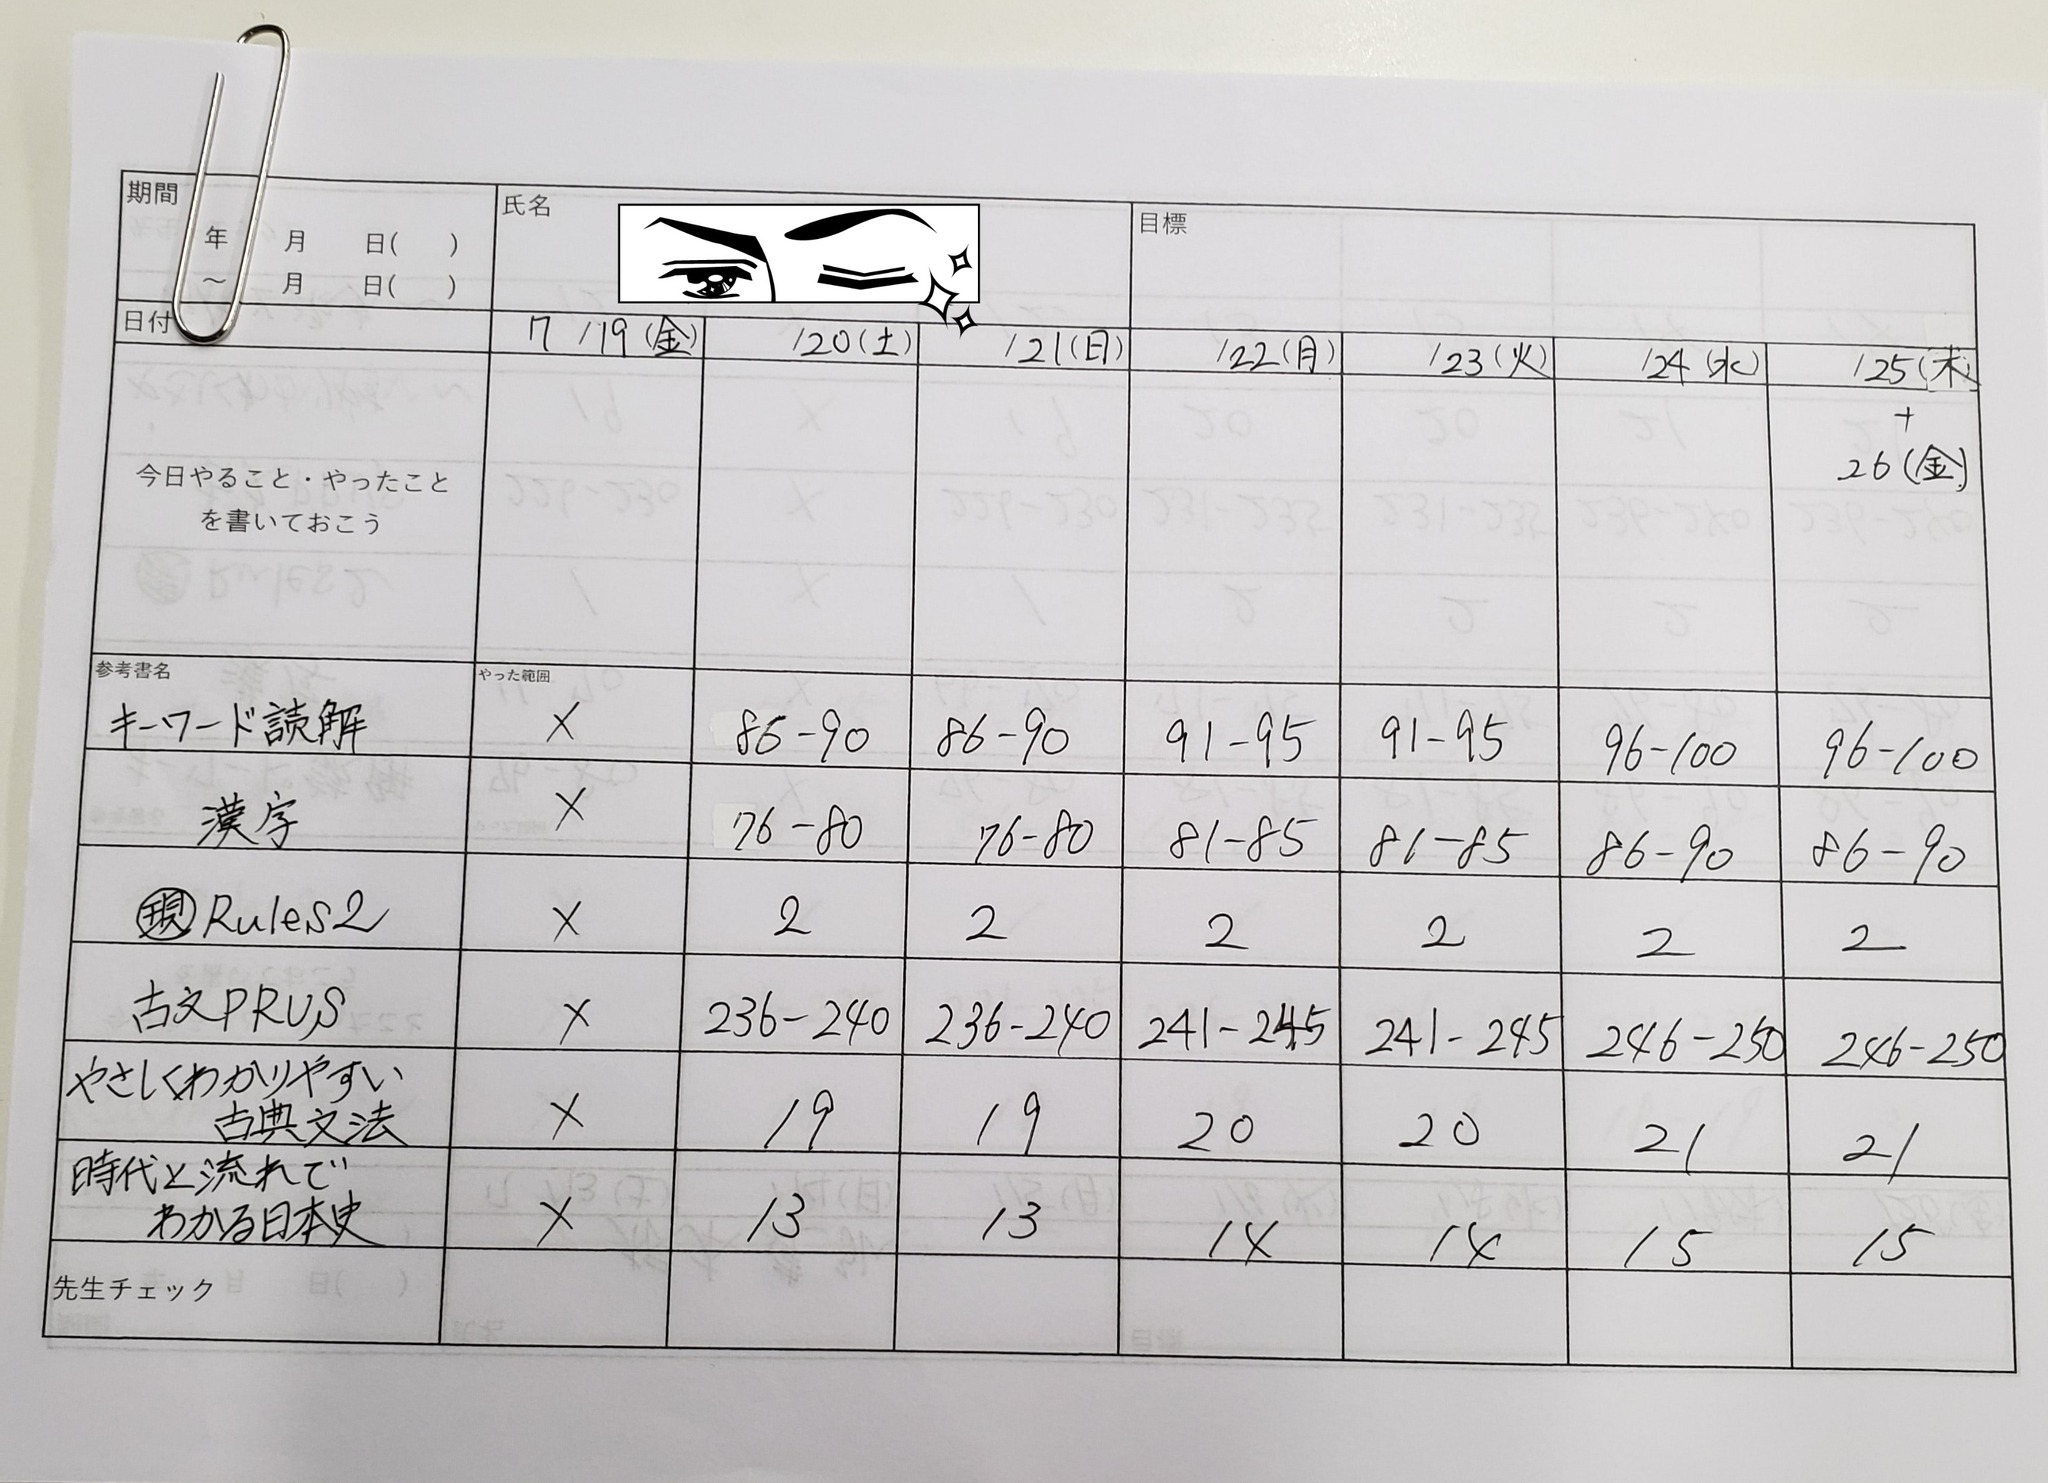 期間
年 月 日( )
～ 月 日( )
氏名
目標
日付 7 /19(金) /20(土) /21(日) /22(月) /23(火) /24(水) /25(木)
+
26(金)
今日やること・やったこと
を書いておこう
参考書名 やった範囲
キーワード読解 × 86-90 86-90 91-95 91-95 96-100 96-100
漢字 × 76-80 76-80 81-85 81-85 86-90 86-90
現 Rules2 × 2 2 2 2 2 2
古文PRUS × 236-240 236-240 241-245 241-245 246-250 246-250
やさしくわかりやすい
古典文法 × 19 19 20 20 21 21
時代と流れで
わかる日本史 × 13 13 14 14 15 15
先生チェック